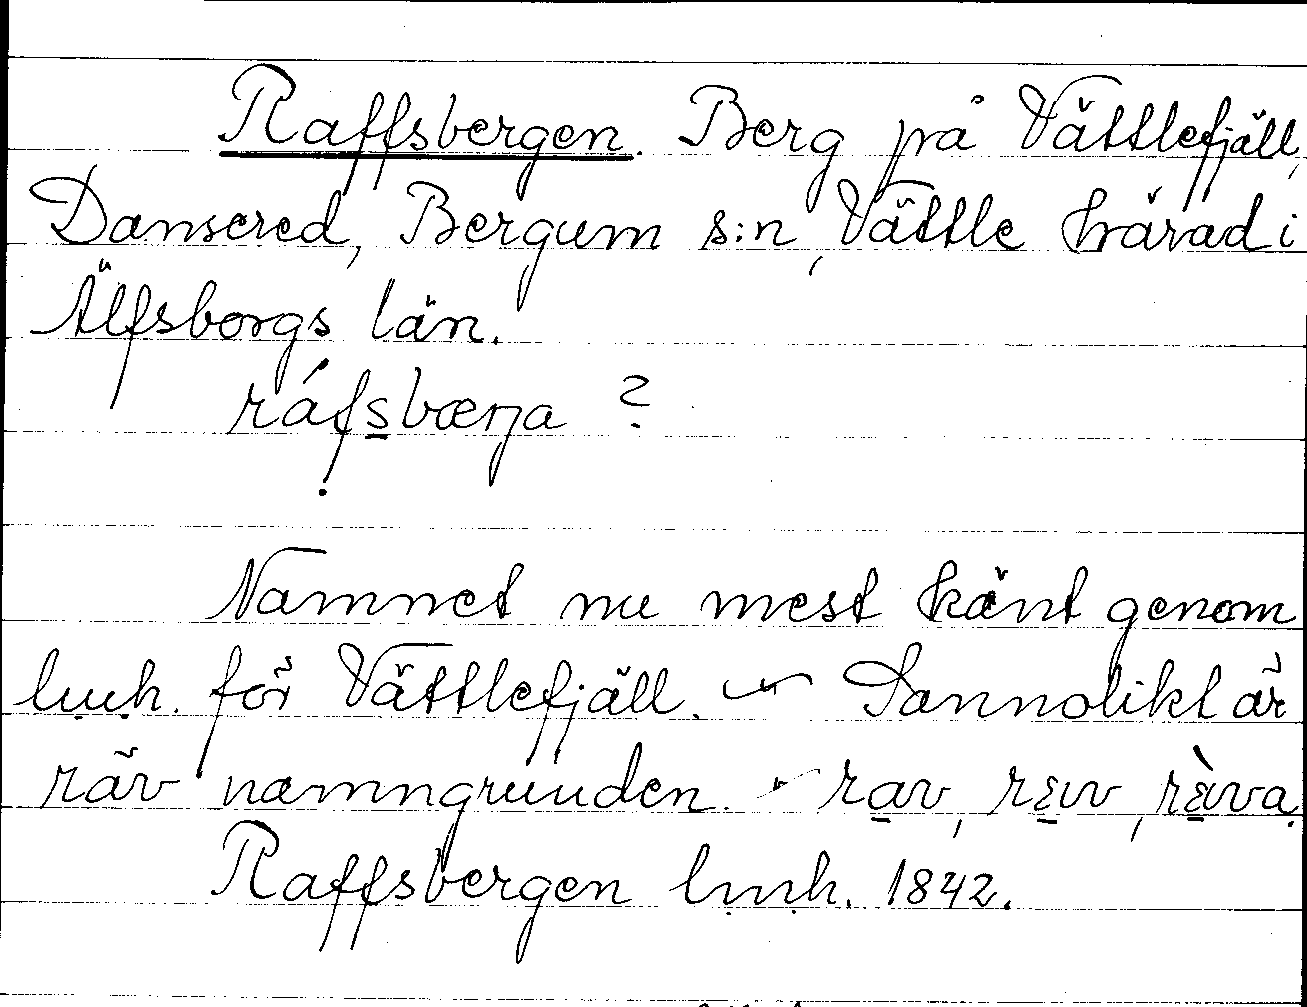 Raffsbergen. Berg på Vättlefjäll,
Dansered, Bergum s:n, Vättle härad i
Älfsborgs län.
ráfsbærja ?
Namnet nu mest känt genom
lmh. för Vättlefjäll. – Sannolikt är
räv namngrunden. – rav, rɛv, rɛ̀va.
Raffsbergen lmh. 1842.